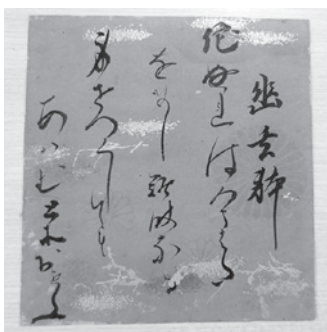 幽玄躰
侘ぬれは今はた
をなし難波なる
身をつくしても
あはむとそおもふ